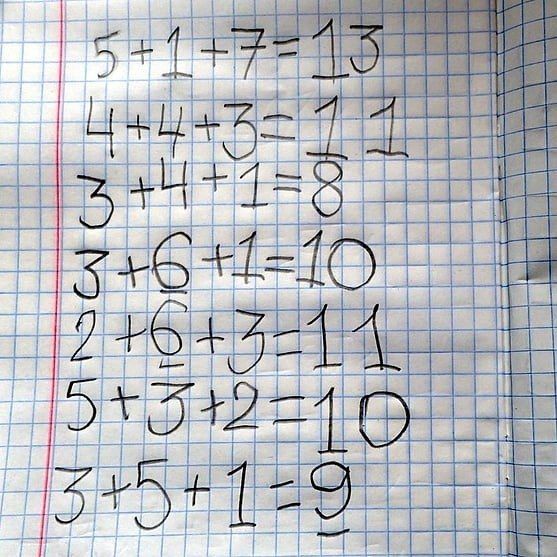 5+1+7=13
4+4+3=11
3+4+1=8
3+6+1=10
2+6+3=11
5+3+2=10
3+5+1=9